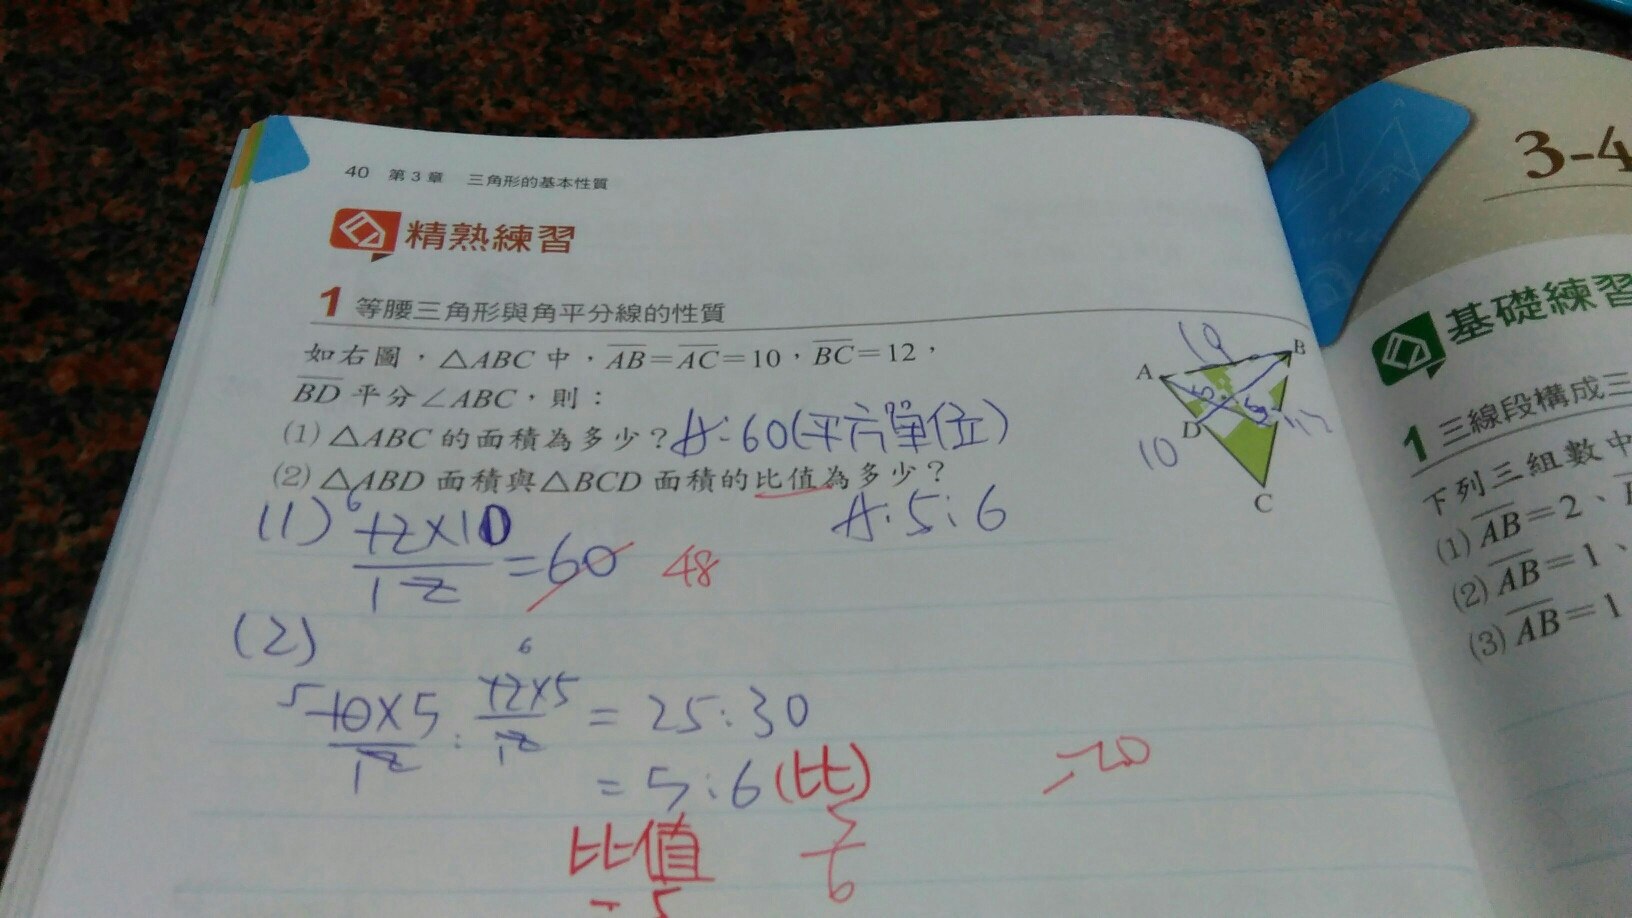 40 第3章 三角形的基本性質
精熟練習
1 等腰三角形與角平分線的性質
如右圖，△ABC 中，AB=AC=10，BC=12，
BD 平分∠ABC，則：
(1) △ABC 的面積為多少？A:60(平方單位)
(2) △ABD 面積與△BCD 面積的比值為多少？
A:5:6
10
A
B
D
C
10
12
5
5
(1) 12×10
6
2
1
=60 48
(2)
10×5
5
2
1
:
12×5
6
2
1
= 25:30
= 5:6 (比)
比值
5
6
-5
-20
3-4
基礎練習
1 三線段構成三
下列三組數中
(1) AB=2、
(2) AB=1、
(3) AB=1